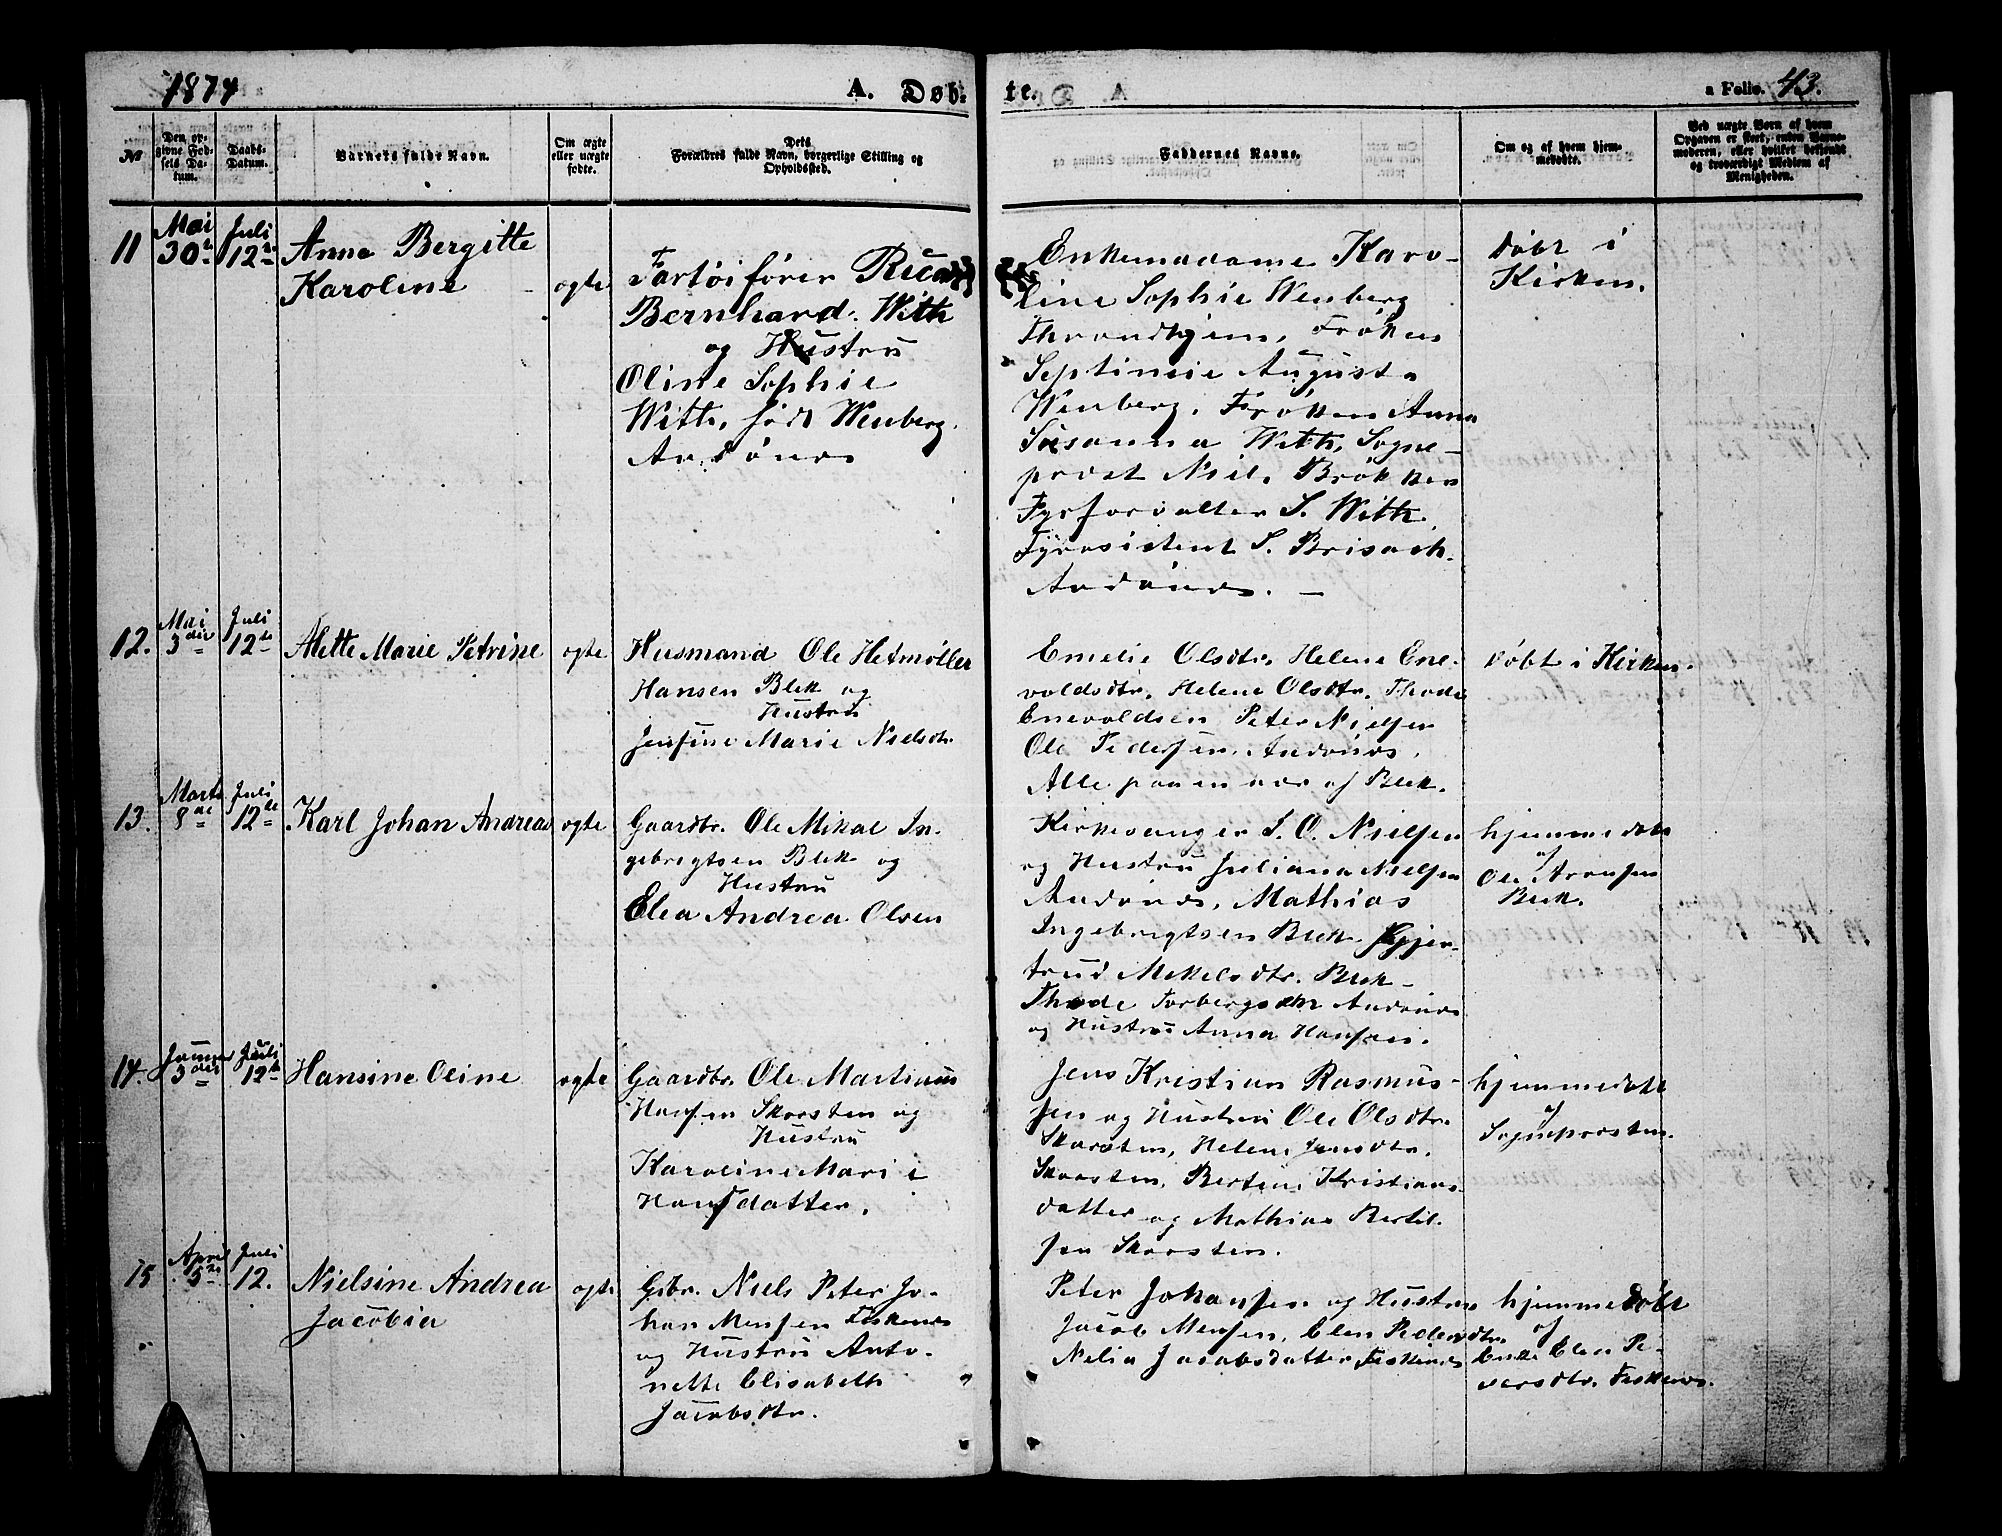 1874
A. Døb-
te.
a Folio. 43.
№
Den opgivne Fødsels Datum.
Daabs-Datum.
Barnets fulde Navn.
Om ægte eller uægte fødte.
Dets Forældres fulde Navn, borgerlige Stilling og Opholdssted.
Faddernes Navne.
Om og af hvem hjemmedøbte.
Ved uægte Børn af hvem Opgaven er skeet, enten Barnemoderen, eller hvilket bekjendt og troværdigt Medlem af Menigheden.
11
Mai 30te
Juli 12te
Anna Bergitte
Karoline
ogte
Fartøifører Ricard
Bernhard. With
og Hustru
Oline Sophie
With, født Wenberg.
Andønes
Enkemadame Karo-
line Sophie Wenberg
Throndhjem, Frøken
Septimeie Augusta
Wenberg, Frøken Anna
Susanna With, Sogne-
prest Niel. Brøkker
Fyrforvalter S. With.
Fyrasistent S. Brisach.
Andønes. —
Døbt i
Kirken.
12.
Mai 3die
Juli 12te
Mette Marie Petrine
ogte
Husmand Ole Hetmøller
Hansen Blek og
Hustru
Jensine Marie Nielsdtr.
Emelie Olsdtr. Helene Ene-
voldsdtr. Helene Olsdtr. Thode
Enevoldsen Peter Nielsen
Ole Pedersen, Andenes,
Alle paa en nær af Blek.
Døbt i Kirken.
13.
Marts 8de
Juli 12te
Karl Johan Andreas
ogte
Gaardbr. Ole Mikal In-
gebrigtsen Blek og
Hustru
Elea Andrea Olsen
Kirkesanger I. O. Nielsen
og Hustru Juliana Nielsen
Andenes, Mathias
Ingebrigtsen Blek Gjer-
trud Mekelsdtr. Blek
Thode Torbergsdtr Andenes
og Hustru Anna Hansen.
hjemmedøbt
af
Ole Aronsen
Blek.
14.
Januar 3die
Juli 12te
Hansine Oline
ogte
Gaardbr. Ole Martinus
Hansen Skarsten og
Hustru
Karoline Marie
Hansdatter.
Jens Kristian Rasmus-
sen og Hustru Ole Olsdtr.
Skarsten, Helene Jensdtr.
Skarsten, Bertine Kristians-
datter og Mathias Bertil-
sen Skarsten.
hjemmedøbt
af
Sognepresten.
15
April 5te
Juli 12.
Nielsine Andrea
Jacobia
ogte
Gbr. Niels Peter Jo-
han Mensen Fiskenes
og Hustru Anto-
nette Elisabeth
Jacobsdtr.
Peter Johansen og Hustru
Jacob Mensen, Elen Pedersdtr.
Nelia Jacobsdatter Fiskenes
hjemmedøbt
af
Enke Elen Pe-
dersdtr. Fiskenes.